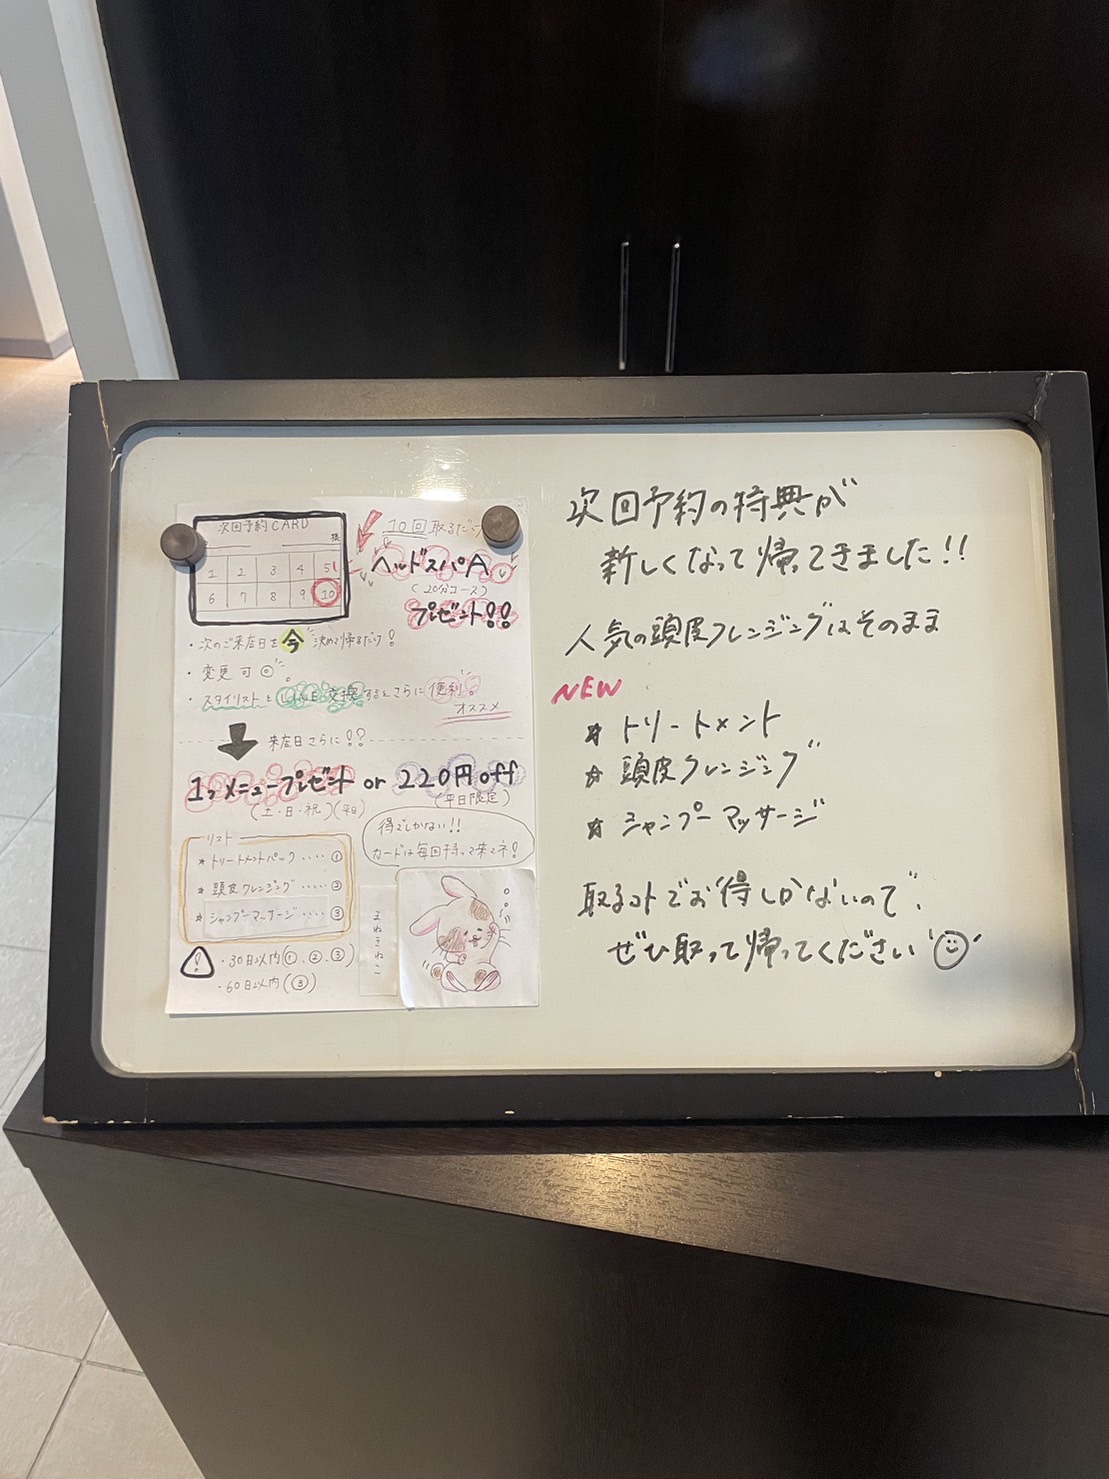 次回予約CARD
様
1 2 3 4 5
6 7 8 9 10
10回取るだけ
ヘッドスパA
(20分コース)
プレゼント!!
・次のご来店日を今決めて帰るだけ!
・変更可◎。
・スタイリストとLINE交換するとさらに便利。
オススメ
来店日さらに!?
1つメニュープレゼント or 220円off
(土・日・祝)(平日)
(平日限定)
得でしかない!!
カードは毎回持って来てネ!
リスト
☆トリートメントパック‥‥①
☆頭皮クレンジング‥‥‥②
☆シャンプーマッサージ‥‥③
!
・30日以内(①、②、③)
・60日以内(③)
まねきねこ
次回予約の特典が
新しくなって帰ってきました!!
人気の頭皮クレンジングはそのまま
NEW
☆ トリートメント
☆ 頭皮クレンジング
☆ シャンプーマッサージ
取るコトでお得しかないので、
ぜひ取って帰ってください